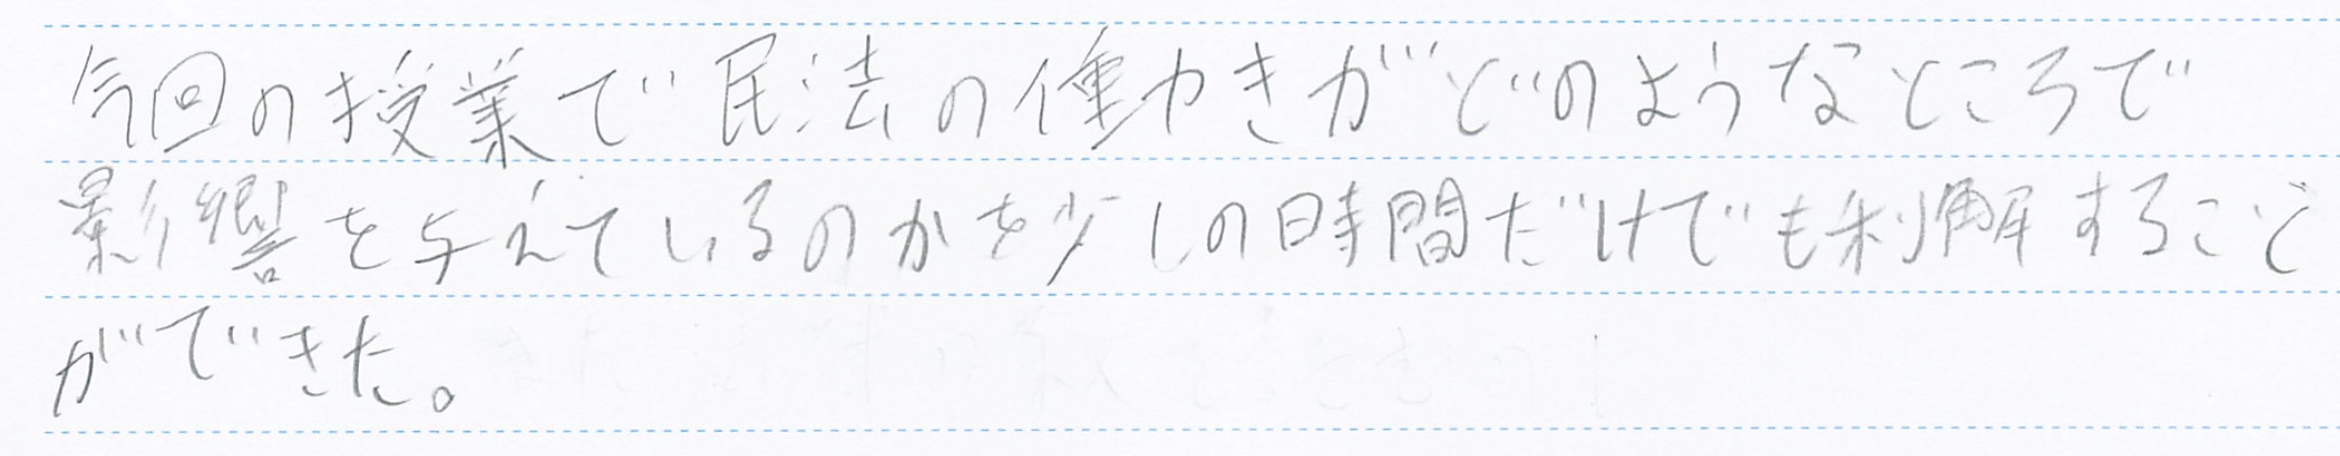 今回の授業で民法の働やきがどのようなところで
影響を与えているのかを少しの時間だけでも利解すること
ができた。